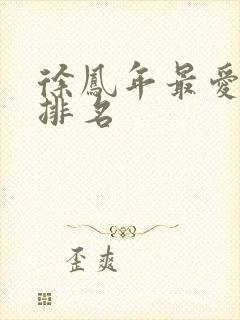 徐鳳年最愛
排名
歪爽